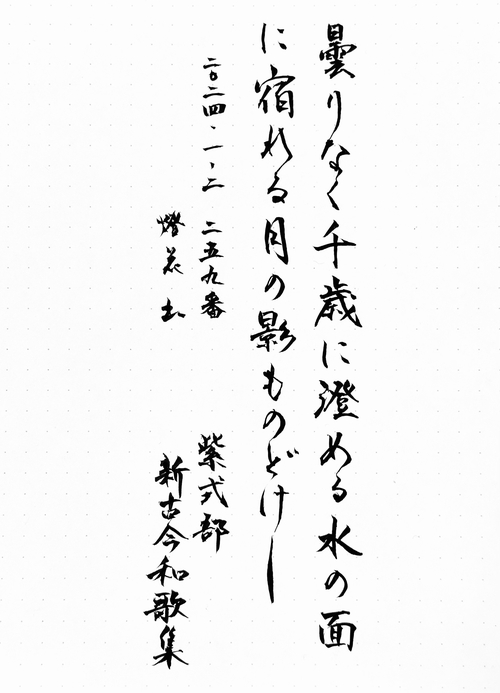 曇りなく千歳に澄める水の面
に宿れる月の影ものどけし
二〇二四・一・二 二五九番
紫式部
新古今和歌集